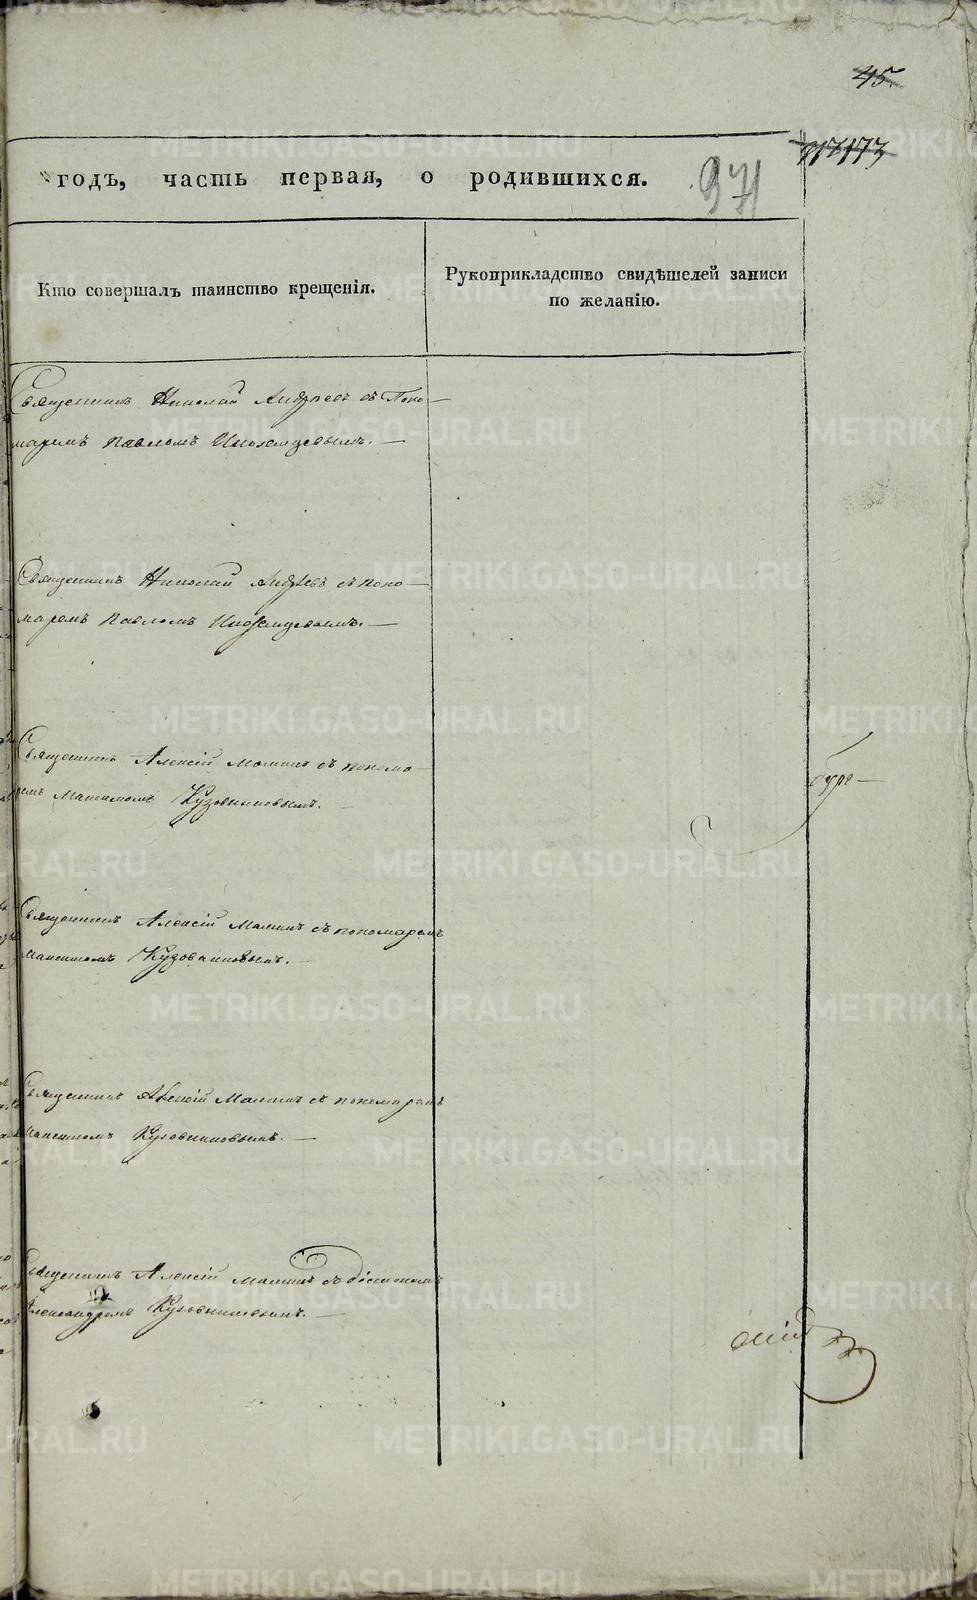 45.
годъ, часть первая, о родившихся.
Кто совершалъ таинство крещенія.
Рукоприкладство свидѣтелей записи
по желанію.
Священникъ Николай Андреевъ съ Поно-
маремъ Павломъ Иноземцевымъ.
Священникъ Николай Андреевъ съ поно-
маремъ Павломъ Иноземцевымъ.
Священникъ Алексій Маминъ съ понома-
ремъ Максимомъ Кузовниковымъ.
Священникъ Алексій Маминъ съ пономаремъ
Максимомъ Кузовниковымъ.
Священникъ Алексій Маминъ съ пономаремъ
Максимомъ Кузовниковымъ.
Священникъ Алексій Маминъ съ діакономъ
Александромъ Кузовниковымъ.
METRIKI.GASO-URAL.RU